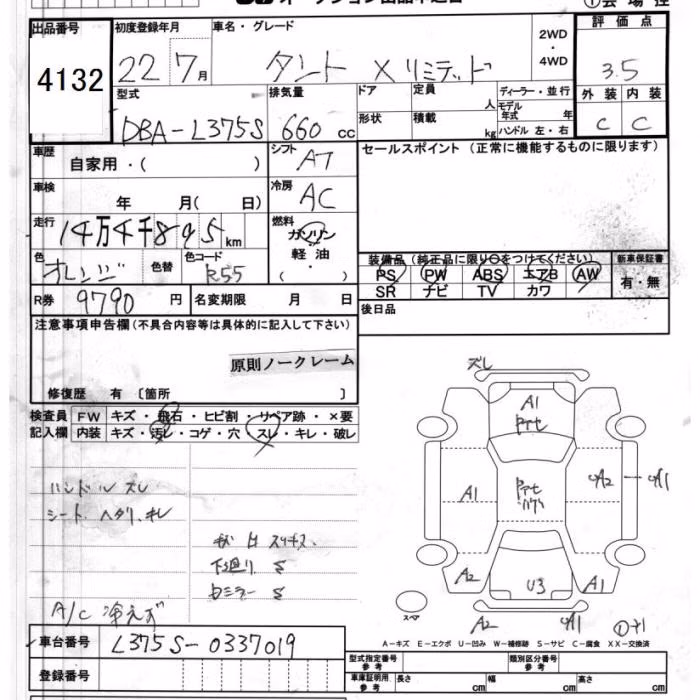 オークション出品申込書
①会場控
出品番号 初度登録年月 車名・グレード 評価点
4132 22 7月 タント Xリミテッド 2WD・4WD 3.5
型式 排気量 ドア 定員 人 ディーラー・並行 外装 内装
DBA-L375S 660cc 形状 積載 kg モデル年式 年 ハンドル 左・右 C C
車歴 自家用・( ) シフト AT セールスポイント(正常に機能するものに限ります)
車検 年 月( 日) 冷房 AC
走行 14万4千895km 燃料 ガソリン
軽油
・( )
色 オレンジ 色替 色コード R55
装備品(純正品に限り○をつけてください) 新車保証書
PS PW ABS エアB AW 有・無
SR ナビ TV カワ
R券 9790円 名変期限 月 日 後日品
注意事項申告欄(不具合内容等は具体的に記入して下さい)
原則ノークレーム
修復歴 有 〔箇所 〕
検査員記入欄 FW キズ・飛石・ヒビ割・リペア跡・×要
内装 キズ・汚レ・コゲ・穴・スレ・キレ・破レ
ハンドルスレ
シート ヘタリ、キレ
下廻りS
A/C 冷えず
ズレ
A1
A1
A2
A1
A2
U3
A1
A2
A1
スペア
A-キズ E-エクボ U-凹み W-補修跡 S-サビ C-腐食 XX-交換済
車台番号 L375S-0337019
登録番号
型式指定番号参考 類別区分番号参考
車庫証明用参考 長さ cm 幅 cm 高さ cm